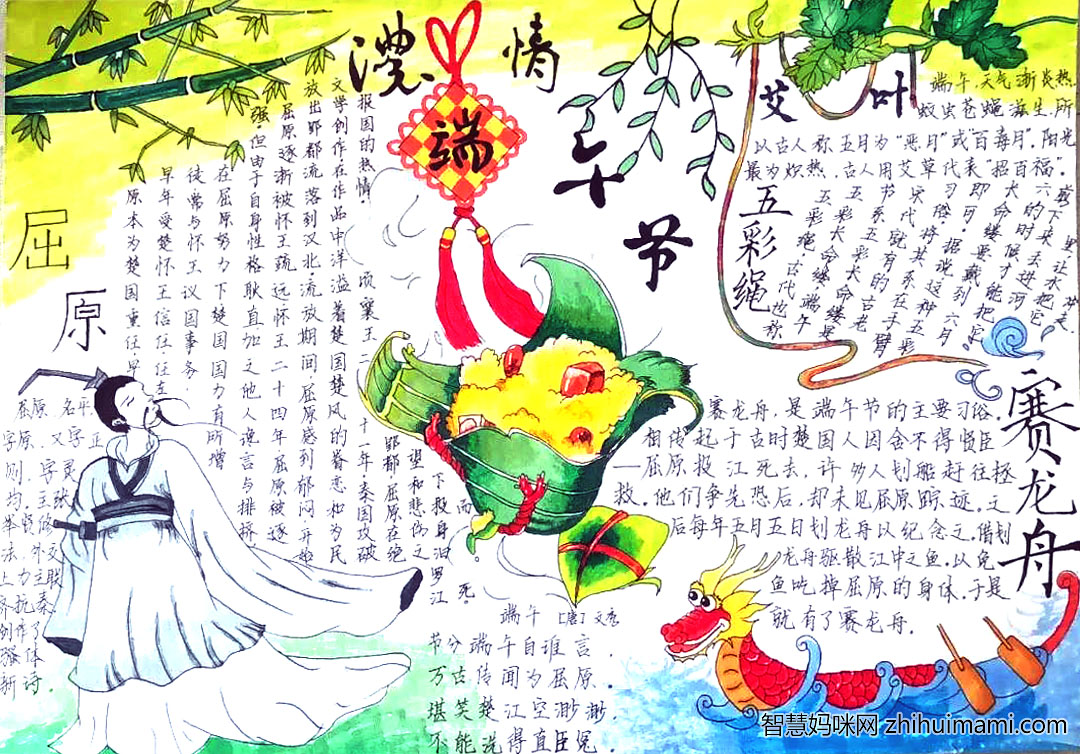 濃情端午节
屈原
屈原 名平
字原.又字正
则,字灵
均.主张
举贤修
法,外交
上力主联
齐抗秦
创作了
骚体
新诗.
原本为楚国重任早
早年受楚怀王信任任左
徒常与怀王议国事务
在屈原努力下楚国国力有所增
强.但由于自身性格耿直加之他人谗言与排挤
屈原逐渐被怀王疏远怀王二十四年屈原被逐
放出郢都流落到汉北流放期间屈原感到郁闷开始
文学创作在作品中洋溢着楚国楚风的眷恋和为民
报国的热情.顷襄王二十一年秦国攻破
郢都.屈原在绝
望和悲伤之
下投身汨罗江
而死。
艾叶
端午,天气渐炎热.
蚊虫苍蝇滋生.所
以古人称五月为"恶月"或"百毒月".阳光
最为炽热.古人用艾草代表"招百福".
五彩绳
五彩绳.古代也称
五彩长命缕.端午
节系五彩长命缕是
宋代就有的古老
习俗.将其系在手臂
即可.据说这种五彩
赛龙舟
赛龙舟,是端午节的主要习俗.
相传起于古时楚国人因舍不得贤臣
—屈原投江死去,许多人划船赶往拯
救.他们争先恐后,却未见屈原踪迹.之
后每年五月五日划龙舟以纪念之.借划
龙舟驱散江中之鱼.以免
鱼吃掉屈原的身体.于是
就有了赛龙舟.
端午 [唐]文秀
节分端午自谁言.
万古传闻为屈原.
堪笑楚江空渺渺.
不能洗得直臣冤.
智慧妈咪网 zhihuimami.com